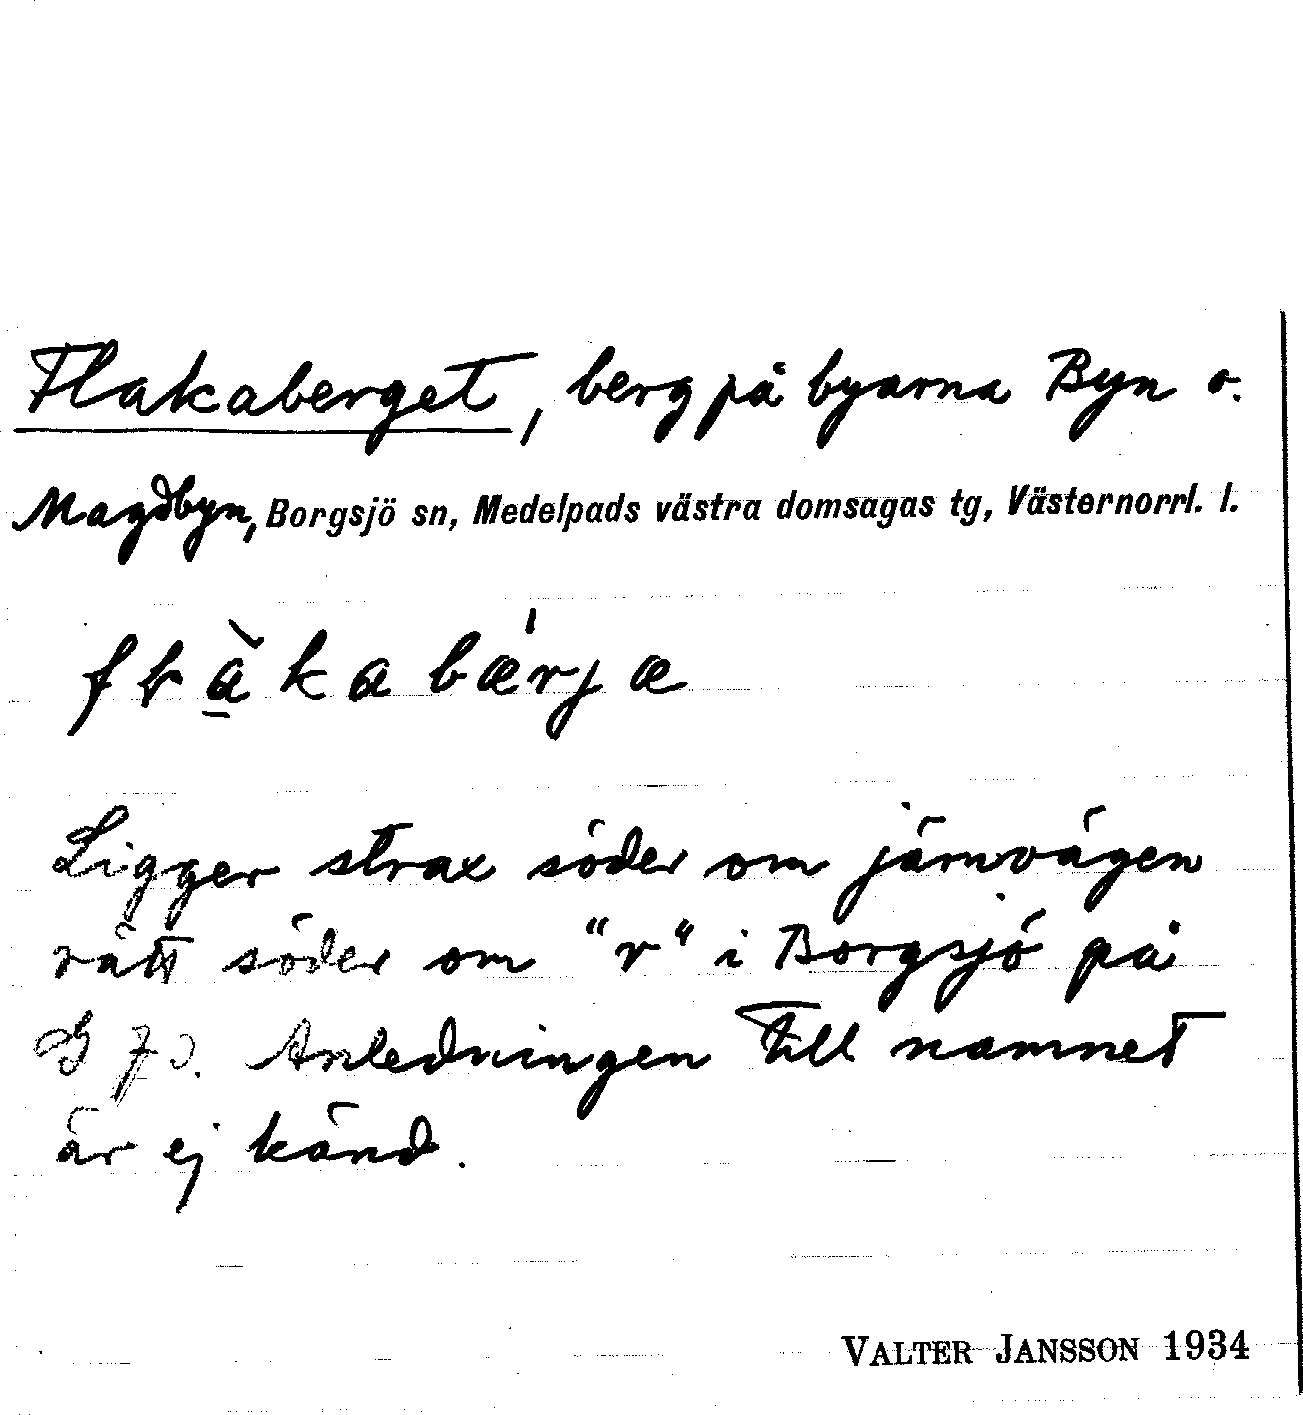 Flakaberget, berg på byarna Byn o.
Magdbyn, Borgsjö sn, Medelpads västra domsagas tg, Västernorrl. l.
bærjæ
Ligger strax söder om järnvägen
rätt söder om "r" i Borgsjö på
G Anledningen till namnet
är ej känd.
VALTER JANSSON 1934